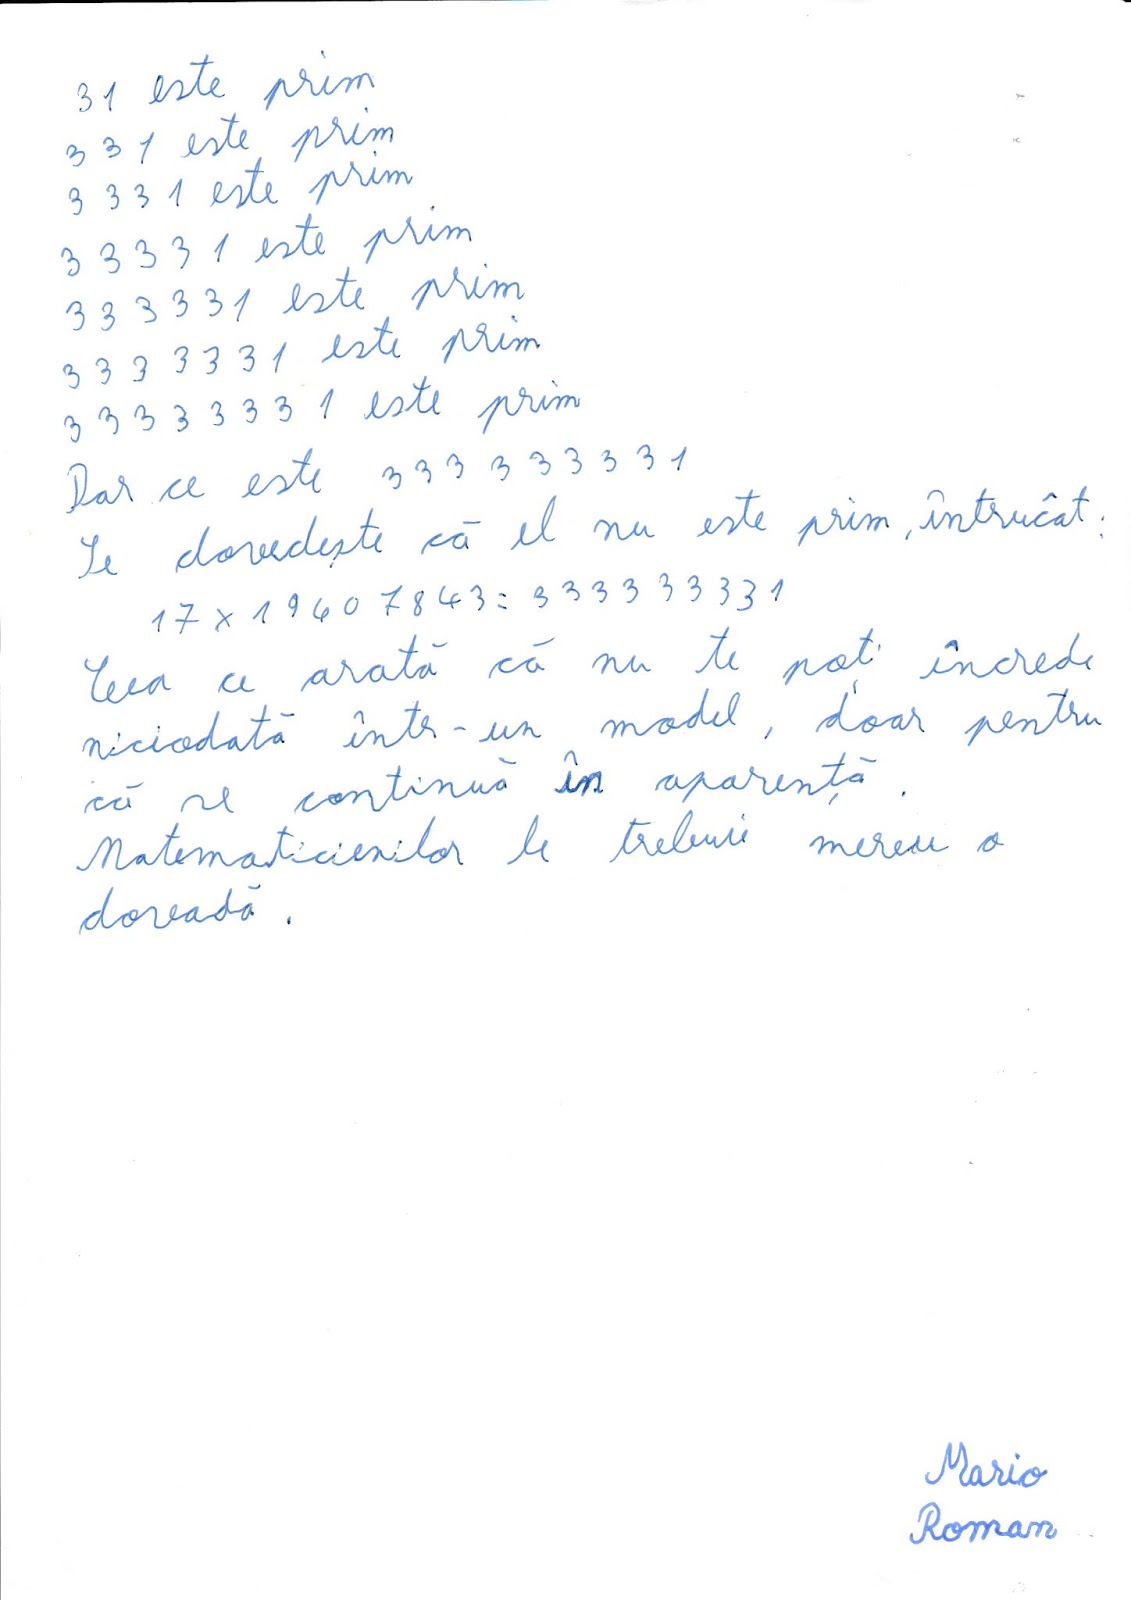 31 este prim
331 este prim
3331 este prim
33331 este prim
333331 este prim
3333331 este prim
33333331 este prim
Dar ce este 333333331
Se dovedește că el nu este prim, întrucât:
17 x 19607843 = 333333331
Ceea ce arată că nu te poți încrede
niciodată într-un model, doar pentru
că se continuă în aparență.
Matematicienilor le trebuie mereu o
dovadă.
Mario
Roman